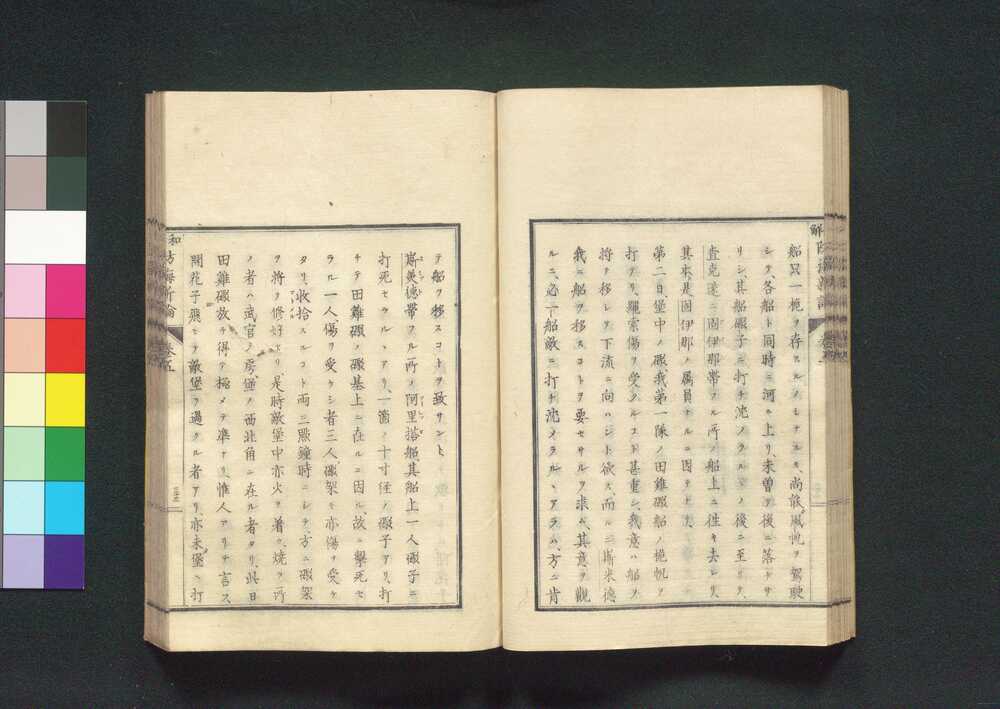 船只一桅ヲ存スルノミナルモ、尚能風帆ヲ駕駛
シテ、各船ト同時ニ河ヲ上リ、未曽テ後ニ落チサ
リシ、其船礮子ニ打チ沈メラルヽノ後ニ至リテ、
査克遜ニ因伊那帯フル所ノ船上ニ往キ去レリ、
其本、是因伊那ノ属員ナルニ因テナリ、
第二日堡中ノ礮、我第一隊ノ田雞礮船ノ桅帆ヲ
打テリ、縄索傷ヲ受クルコト甚重シ、我意ハ船ヲ
将テ移シテ下流ニ向ハント欲ス、而ルニ斯米徳
我ニ船ヲ移スコトヲ要セサルヲ求ム、其意ヲ観
ルニ、必一船敵ニ打チ沈メラルヽヿアラハ、方ニ肯
テ船ヲ移スコトヲ致サント
斯美徳帯フル所ノ阿里搭船、其船上一人礮子ニ
打死セラルヽアリ、一箇ノ十寸径ノ礮子アリ、打
チテ田雞礮ノ礮基上ニ在ルニ因ル、故ニ撃死セ
ラル一人、傷ヲ受ケシ者三人、礮架モ亦傷ヲ受ケ
タリ、収拾スルコト両三點鐘時ニシテ、方ニ礮架
ヲ将テ修好セリ、是時敵堡中亦火ヲ着ク、焼ク所
ノ者ハ武官ノ房、堡ノ西北角ニ在ル者タリ、此日
田雞礮放チ得テ極メテ準ナリ、惟人アリテ言ス
開花子飛セテ敵堡ヲ過クル者アリ、亦未堡ヽ打